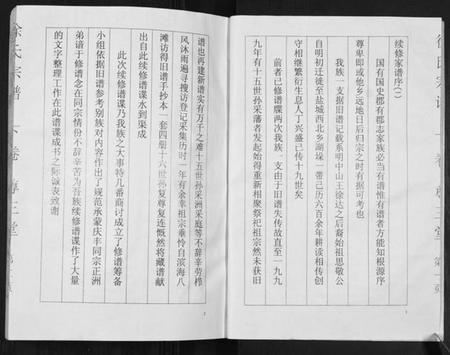 续修家谱序(二)
国有国史郡有郡志家族必当有谱惟有谱者方能知根源序
尊卑即或他乡远地日后归宗之时有据可考也
我族一支据旧谱记载系明中山王徐达之后裔始祖思敬公
自明初迁徙至盐城西北乡湖垛一带已历六百余年耕读相传创
守相继繁衍生息人丁兴盛已传十九世矣
前者已修谱牒两次我族一支由于旧谱失传故直至一九九
九年有十五世孙采藩者发起始得重新相聚祭祀祖宗然未获旧
谱也再建新谱实有万千之难十五世孙采洲采庭等不辞辛劳栉
风沐雨遍寻搜访登记采集历时一年有余幸祖宗垂怜自滨海八
滩访得旧谱手抄本一套四册十六世孙复尊复连慨然将藏谱献
出自此续修谱牒水到渠成
此次续修谱牒乃我族之大事特几番商讨成立了修谱筹备
小组依据旧谱参考别族对内容作出了规范承蒙庆丰同宗正洲
弟谙于修谱念在同宗情份不辞辛苦为吾族续修谱牒作了大量
的文字整理工作在此谱谍成书之际诚表致谢
徐氏宗谱
卷
尊三堂